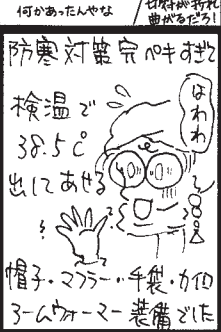 何かあったんやな
曲がるだろ!
防寒対策完ペキすぎて
検温で
38.5℃
出してあせる
はわわ
帽子・マフラー・手製・カイロ
アームウォーマー装備でした